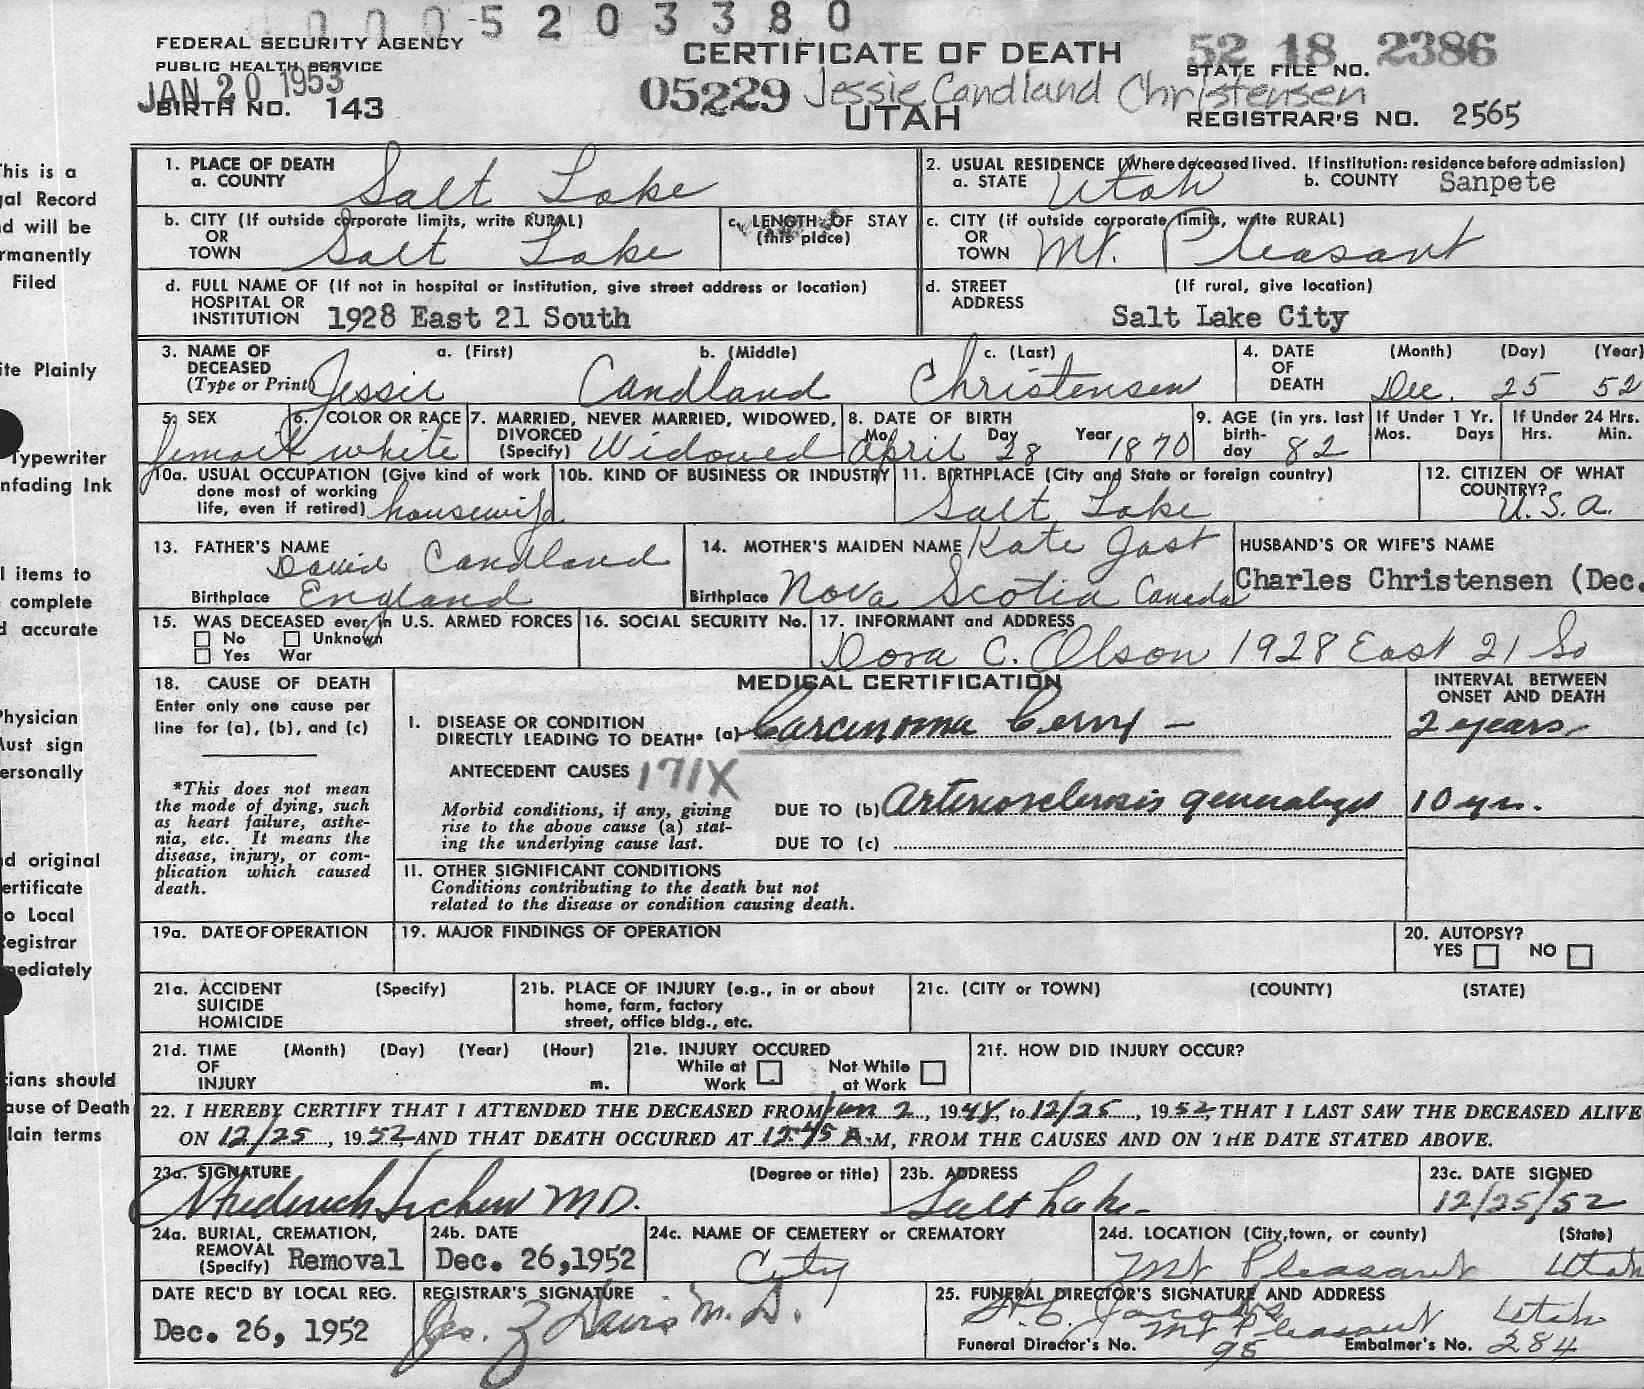 0005203380
FEDERAL SECURITY AGENCY
PUBLIC HEALTH SERVICE
JAN 20 1953
BIRTH NO. 143
CERTIFICATE OF DEATH
05229 Jessie Candland Christensen
UTAH
52 18 2386
STATE FILE NO.
REGISTRAR'S NO. 2565
This is a
gal Record
nd will be
rmanently
Filed
ite Plainly
Typewriter
nfading Ink
l items to
complete
d accurate
Physician
Must sign
ersonally
nd original
ertificate
to Local
Registrar
mediately
cians should
ause of Death
lain terms
1. PLACE OF DEATH
a. COUNTY Salt Lake
2. USUAL RESIDENCE (Where deceased lived. If institution: residence before admission)
a. STATE Utah b. COUNTY Sanpete
b. CITY (If outside corporate limits, write RURAL)
OR
TOWN Salt Lake
c. LENGTH OF STAY
(this place)
c. CITY (if outside corporate limits, write RURAL)
OR
TOWN Mt. Pleasant
d. FULL NAME OF (If not in hospital or institution, give street address or location)
HOSPITAL OR
INSTITUTION 1928 East 21 South
d. STREET (If rural, give location)
ADDRESS Salt Lake City
3. NAME OF DECEASED (Type or Print) a. (First) b. (Middle) c. (Last)
Jessie Candland Christensen
4. DATE OF DEATH (Month) (Day) (Year)
Dec. 25 52
5. SEX
Female
6. COLOR OR RACE
white
7. MARRIED, NEVER MARRIED, WIDOWED,
DIVORCED
(Specify) Widowed
8. DATE OF BIRTH
Mo. Day Year
April 28 1870
9. AGE (in yrs. last
birth-
day 82
If Under 1 Yr.
Mos. Days
If Under 24 Hrs.
Hrs. Min.
10a. USUAL OCCUPATION (Give kind of work
done most of working
life, even if retired) housewife
10b. KIND OF BUSINESS OR INDUSTRY
11. BIRTHPLACE (City and State or foreign country)
Salt Lake
12. CITIZEN OF WHAT
COUNTRY?
U.S.A.
13. FATHER'S NAME
David Candland
Birthplace England
14. MOTHER'S MAIDEN NAME Kate Jost
Birthplace Nova Scotia Canada
HUSBAND'S OR WIFE'S NAME
Charles Christensen (Dec.
15. WAS DECEASED ever in U.S. ARMED FORCES
No Unknown
Yes War
16. SOCIAL SECURITY No.
17. INFORMANT and ADDRESS
Dora C. Olson 1928 East 21 So
18. CAUSE OF DEATH
Enter only one cause per
line for (a), (b), and (c)
*This does not mean
the mode of dying, such
as heart failure, asthe-
nia, etc. It means the
disease, injury, or com-
plication which caused
death.
MEDICAL CERTIFICATION
I. DISEASE OR CONDITION
DIRECTLY LEADING TO DEATH* (a) Carcinoma Cervix -
ANTECEDENT CAUSES 171X
Morbid conditions, if any, giving
rise to the above cause (a) stat-
ing the underlying cause last.
DUE TO (b) Arteriosclerosis generalized
DUE TO (c)
INTERVAL BETWEEN
ONSET AND DEATH
2 years
10 yrs.
11. OTHER SIGNIFICANT CONDITIONS
Conditions contributing to the death but not
related to the disease or condition causing death.
19a. DATE OF OPERATION
19. MAJOR FINDINGS OF OPERATION
20. AUTOPSY?
YES NO
21a. ACCIDENT (Specify)
SUICIDE
HOMICIDE
21b. PLACE OF INJURY (e.g., in or about
home, farm, factory
street, office bldg., etc.
21c. (CITY or TOWN) (COUNTY) (STATE)
21d. TIME (Month) (Day) (Year) (Hour)
OF
INJURY m.
21e. INJURY OCCURED
While at Work Not While at Work
21f. HOW DID INJURY OCCUR?
22. I HEREBY CERTIFY THAT I ATTENDED THE DECEASED FROM Jan 2, 1948, to 12/25, 1952 THAT I LAST SAW THE DECEASED ALIVE
ON 12/25, 1952, AND THAT DEATH OCCURED AT 12:45 A.M, FROM THE CAUSES AND ON THE DATE STATED ABOVE.
23a. SIGNATURE (Degree or title)
M.D.
23b. ADDRESS
Salt Lake
23c. DATE SIGNED
12/25/52
24a. BURIAL, CREMATION,
REMOVAL
(Specify) Removal
24b. DATE
Dec. 26,1952
24c. NAME OF CEMETERY or CREMATORY
City
24d. LOCATION (City,town, or county) (State)
Mt Pleasant Utah
DATE REC'D BY LOCAL REG.
Dec. 26, 1952
REGISTRAR'S SIGNATURE
Jos. Z Davis M.D.
25. FUNERAL DIRECTOR'S SIGNATURE AND ADDRESS
Jacobs
Mt Pleasant Utah
Funeral Director's No. 95 Embalmer's No. 284